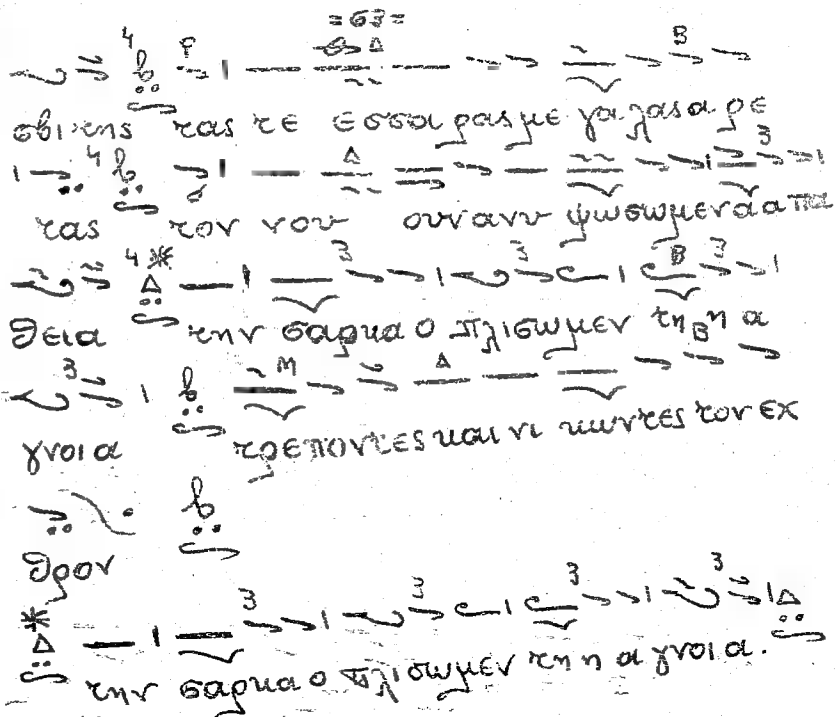 =63=
σβι της τας τε εσσα ρας με γα λας α ρε
τας τον νου ουν ανυ ψωσωμεν α α πα
θεια την σαρκα ο πλισωμεν τη β η α
γνοι α τρεποντες και νι κωντες τον εχ
θρον
την σαρκα ο πλισωμεν τη η α γνοι α.